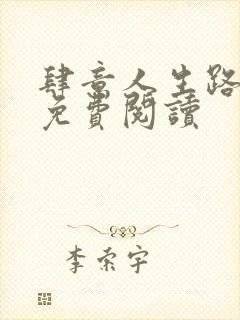 肆意人生路
免費閱讀
李索宇